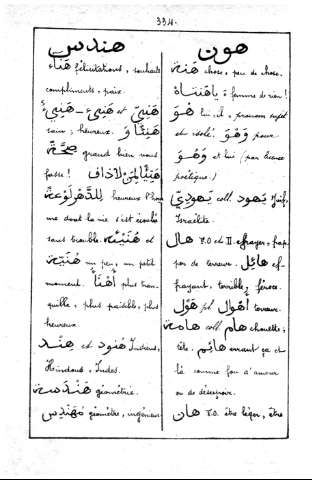 334.
هندس
هَنَاء félicitations, souhaits
compliments, paix.
هَنِيّ - هَنِيء et
sain; heureux. هَنِيئًا وَ
صِحَّةً grand bien vous
fasse! هَنِيئًا لِمَنْ لَاذَاف
لِلدَّهْرِ heureux l'hom
me dont la vie s'est écoulée
sans trouble. هُنَيْئَة et
هُنَيَّة un peu, un petit
moment. أَهْنَأ plus tran-
quille, plus paisible, plus
heureux.
هِنْد et هُنُود Indiens,
Hindous, Indes.
هَنْدَسَة géométrie.
مُهَنْدِس géomètre, ingénieur
هون
هَنَة chose, peu de chose.
يَاهَنْتَاهْ ô femme de rien!
هُوَ lui, il, pronom sujet
et isolé. وَهْوَ pour
وَهُوَ et lui (par licence
poëtique.)
يَهُودِيّ coll. يَهُود Juif,
Israëlite.
هَال F.O et II. effrayer, frap
per de terreur. هَائِل ef-
frayant, terrible, féroce.
هَوْل pl أَهْوَال terreur.
هَامَة coll. هَام chouette;
tête. هَائِم errant ça et
là comme fou d'amour
ou de désespoir.
هَان F.O. être léger, être